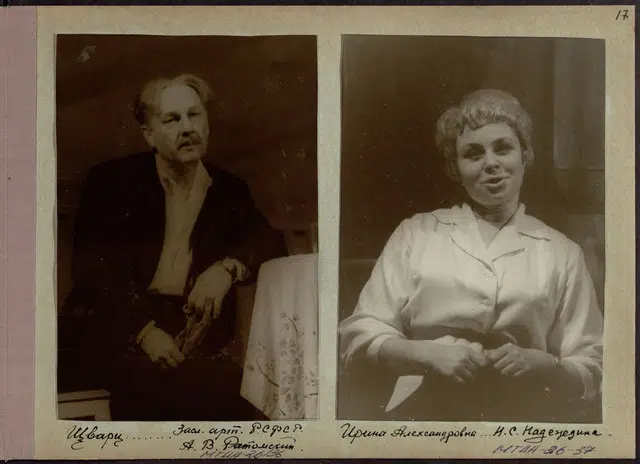 17
Щварц ........ Засл. арт. РСФСР.
А. В. Ратомский.
МТЦА 26-56
Ирина Александровна ... Н. С. Надеждина.
МТЦА 26-57